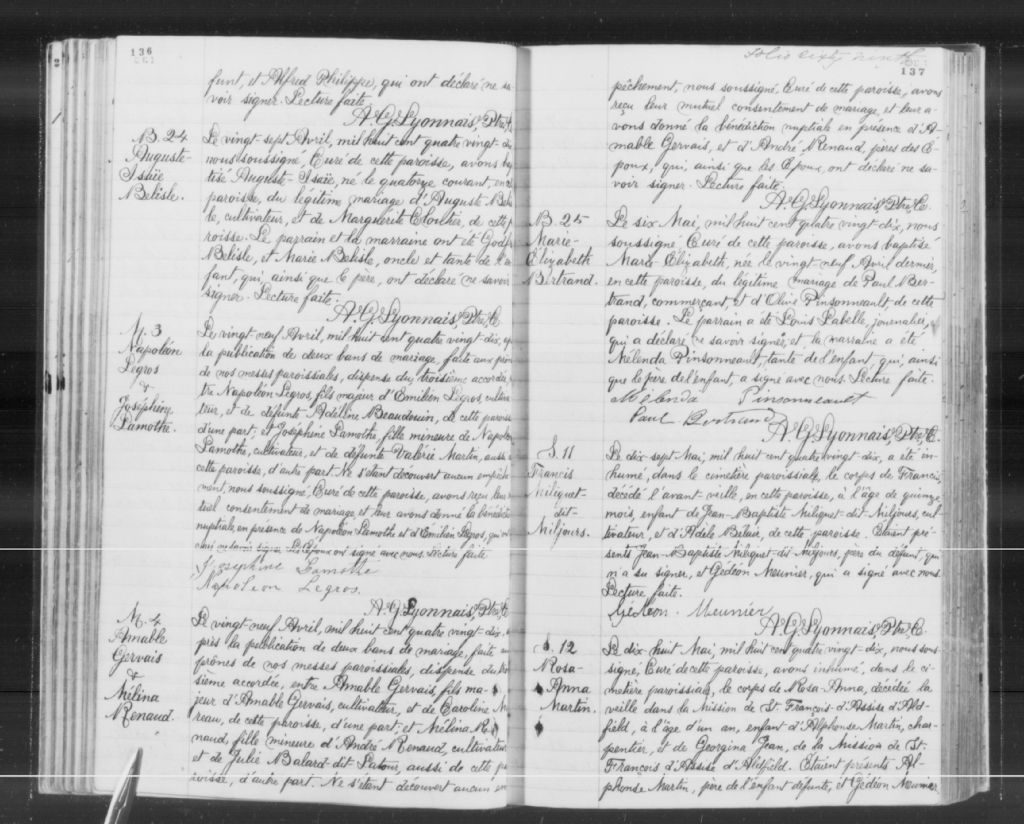 136
funt, et Alfred Philippe, qui ont déclaré ne sa-
voir signer. Lecture faite.
A. G. Lyonnais, Ptre, C.
B. 24
Auguste-
Isaïe
Belisle.
Le vingt-sept Avril, mil huit cent quatre vingt-dix,
nous soussigné, Curé de cette paroisse, avons bap
tisé Auguste-Isaïe, né le quatorze courant, en cette
paroisse, du légitime mariage d'August Belis
le, cultivateur, et de Marguerite Cloutier, de cette pa
roisse. Le parrain et la marraine ont été Godf
Belisle, et Marie Belisle, oncle et tante de l'en
fant, qui, ainsi que le père, ont déclaré ne savoir
signer. Lecture faite.
A. G. Lyonnais, Ptre, C.
M. 3
Napoléon
Legros
&
Joséphine
Lamothe.
Le vingt-neuf Avril, mil huit cent quatre vingt-dix, après
la publication de deux bans de mariage, faite aux prônes
de nos messes paroissiales, dispense du troisième accordée,
tre Napoléon Legros, fils majeur d'Emilien Legros, cultiva
teur, et de défunte Adéline Beaudouin, de cette paroisse
d'une part; et Joséphine Lamothe, fille mineure de Napoléon
Lamothe, cultivateur, et de défunte Valérie Martin, aussi de
cette paroisse, d'autre part. Ne s'étant découvert aucun empêche
ment, nous soussigné, Curé de cette paroisse, avons reçu leur mu
tuel consentement de mariage et leur avons donné la bénédiction
nuptiale, en présence de Napoléon Lamothe et d'Emilien Legros, qui ont
ne savoir signer. Les Epoux ont signé avec nous. Lecture faite
Josephine Lamothe
Napoleon Legros.
A. G. Lyonnais, Ptre, C
M. 4
Amable
Gervais
&
Mélina
Renaud.
Le vingt neuf Avril, mil huit cent quatre vingt-dix, a-
près la publication de deux bans de mariage, faite aux
prônes de nos messes paroissiales, dispense du troi
sième accordée, entre Amable Gervais, fils ma-
jeur d'Amable Gervais, cultivateur, et de Caroline
reau, de cette paroisse, d'une part; et Mélina Re
naud, fille mineure d'André Renaud, cultivateur
et de Julie Balard-dit Latour, aussi de cette pa
roisse, d'autre part. Ne s'étant découvert aucun em
folio sixty ninth
137
pêchement, nous soussigné, Curé de cette paroisse, avons
reçu leur mutuel consentement de mariage, et leur a-
vons donné la bénédiction nuptiale en présence d'A-
mable Gervais, et d'André Renaud, pères des E-
poux, qui, ainsi que les Epoux, ont déclaré ne sa-
voir signer. Lecture faite.
A. G. Lyonnais, Ptre, C.
B. 25
Marie-
Elizabeth
Bertrand.
Le six Mai, mil huit cent quatre vingt-dix, nous
soussigné Curé de cette paroisse, avons baptisé
Marie-Elizabeth, née le vingt neuf Avril dernier,
en cette paroisse, du légitime mariage de Paul Ber-
trand, commerçant, et d'Olive Pinsonneault de cette
paroisse. Le parrain a été Louis Labelle, journalier,
qui a declaré ne savoir signer, et, la marraine a été
Mélenda Pinsonneault, tante de l'enfant, qui, ainsi
que le père, de l'enfant, a signé avec nous. Lecture faite.
Melenda Pinsonneault
Paul Bertrand
A. G. Lyonnais, Ptre, C.
S. 11
Francis
Miliquet-
dit-
Miljours.
Le dix-sept Mai, mil huit cent quatre vingt-dix, a été in-
humé, dans le cimetière paroissiale, le corps de Francis,
décédé l'avant-veille, en cette paroisse, à l'âge de quinze
mois, enfant de Jean-Baptiste Miliquet-dit-Miljours, cul
tivateur, et d'Adèle Belair, de cette paroisse. Etaient pré-
sents Jean-Baptiste Miliquet-dit Miljours, père du défunt, qui
n'a su signer, et Gédéon Meunier, qui a signé avec nous.
Lecture faite.
Gédéon. Meunier
A. G. Lyonnais, Ptre, C.
S. 12
Rosa-
Anna
Martin.
Le dix huit Mai, mil huit cent quatre vingt-dix, nous sous-
signé, Curé de cette paroisse, avons inhumé, dans le ci-
metière paroissiale, le corps de Rosa-Anna, décédée la
veille dans la Mission de St. François d'Assise d'Ald-
field, à l'âge d'un an, enfant d'Alphonse Martin, char-
pentier, et de Georgina Jean, de la Mission de St.
François d'Assise d'Aldfield. Etaient présents Al-
phonse Martin, père de l'enfant défunte, et Gédéon Meunier,